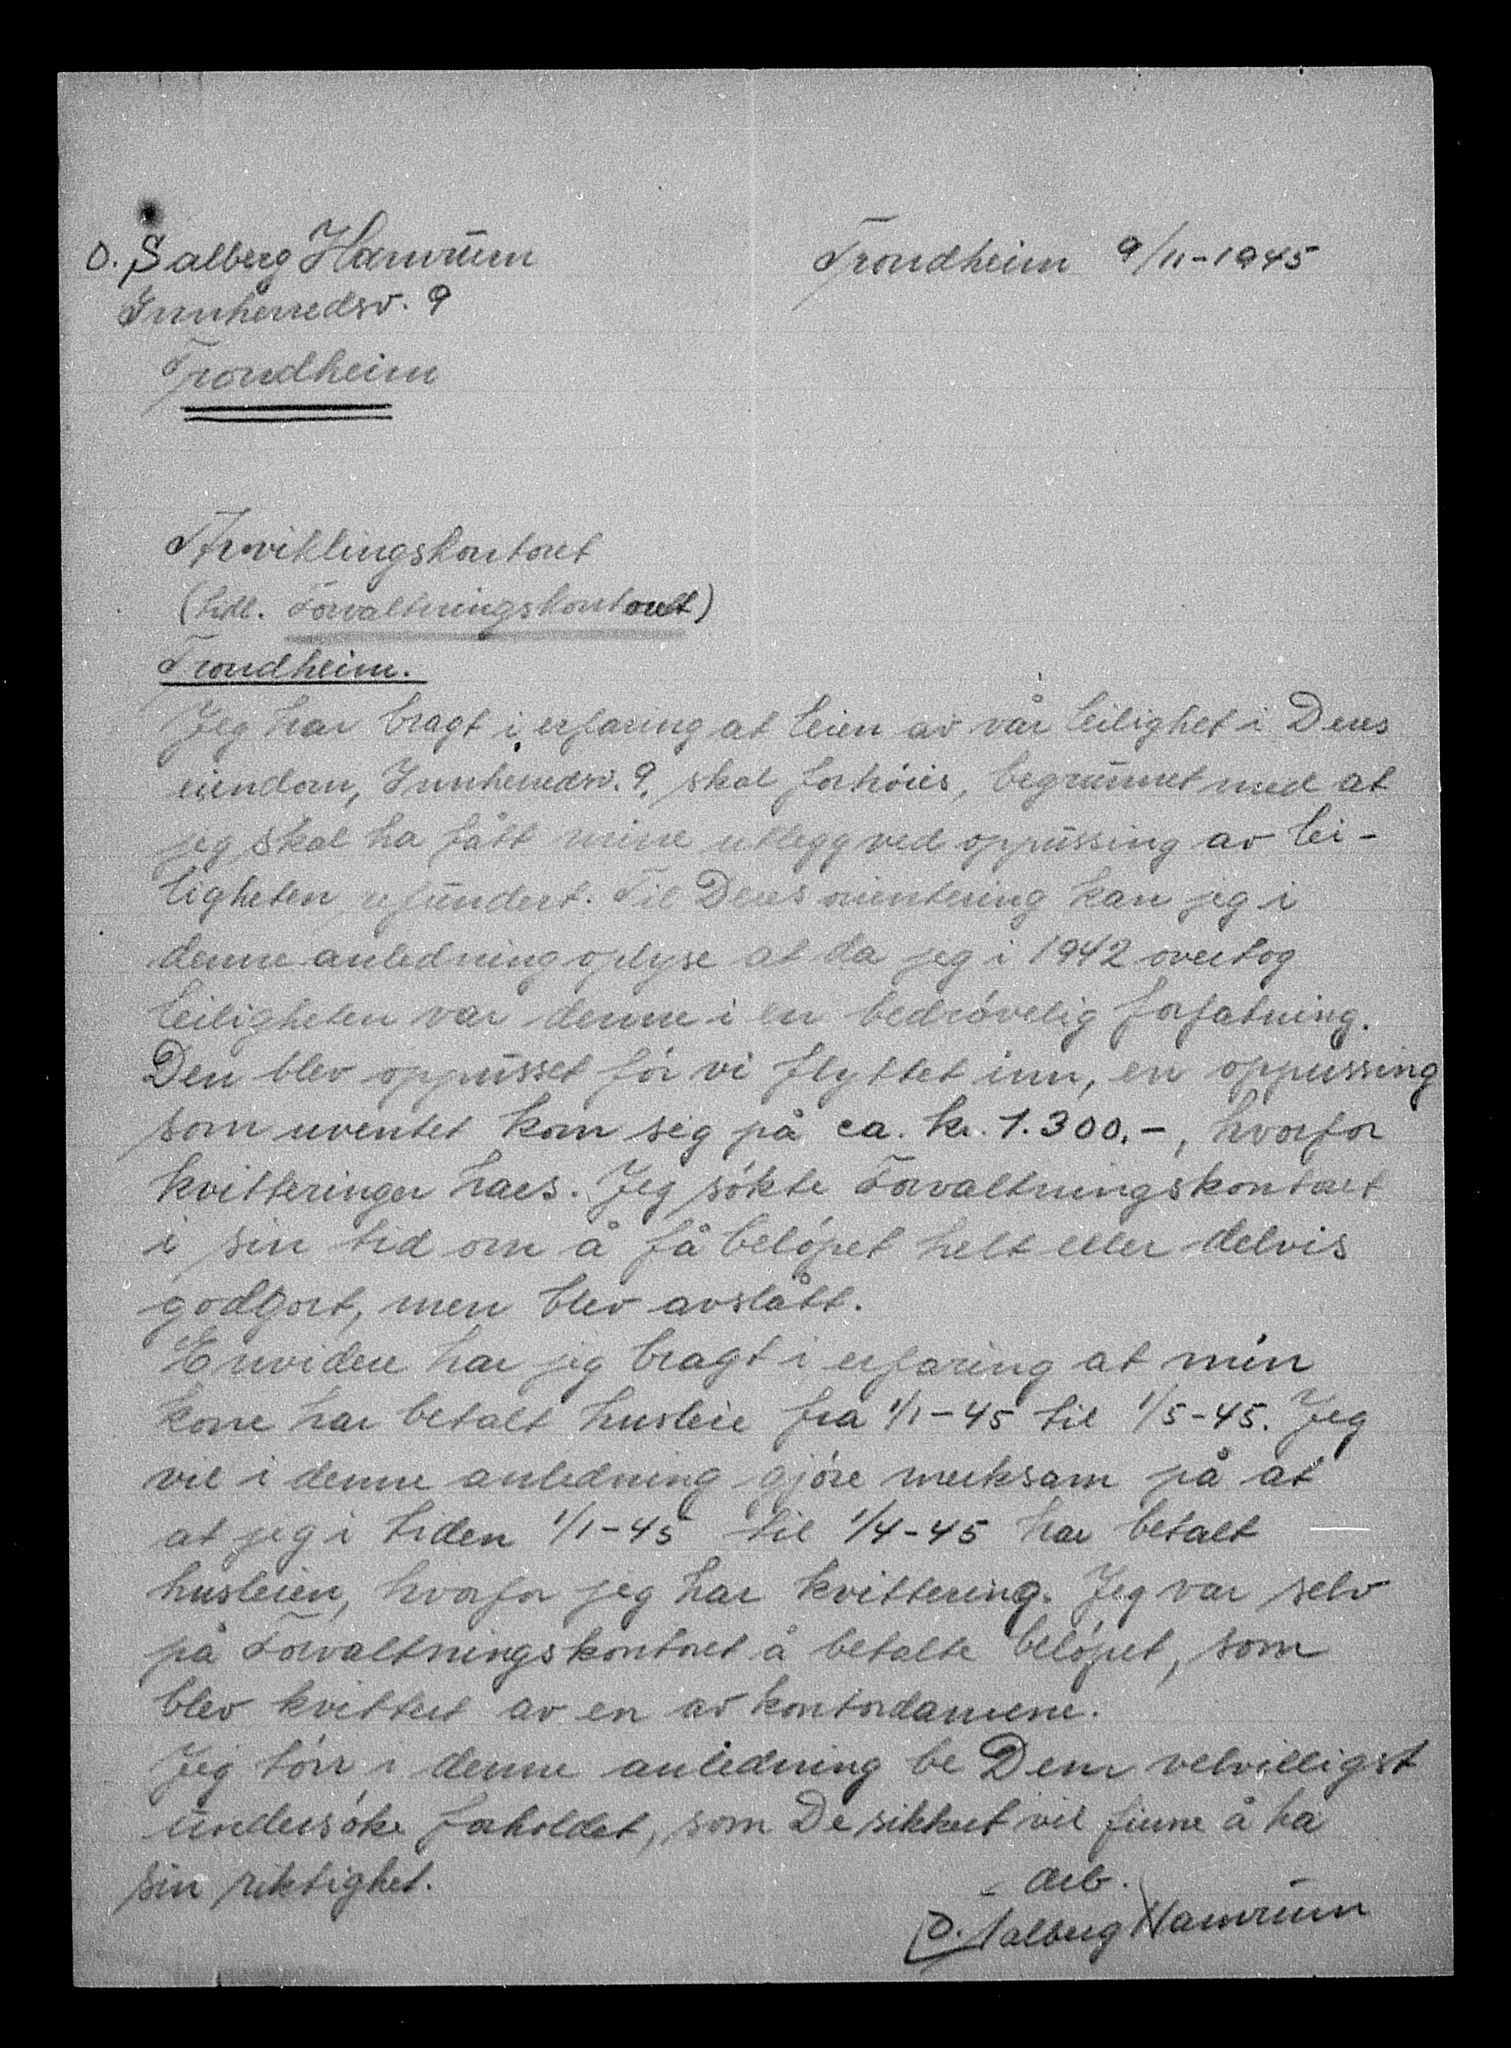 O. Salberg Hamrum
Innherredsv. 9
Trondheim
Trondheim 9/11-1945
Avviklingskontoret
(tidl. Forvaltningskontoret)
Trondheim.
Jeg har bragt i erfaring at leien av vår leilighet i Deres
eiendom, Innherredsv. 9, skal forhöies, begrunnet med at
jeg skal ha fått mine utlegg ved oppussing av lei-
ligheten refundert. Til Deres orientering kan jeg i
denne anledning oplyse at da jeg i 1942 overtog
leiligheten var denne i en bedrövelig forfatning.
Den blev oppusset för vi flyttet inn, en oppussing
som uventet kom sig på ca. kr. 1.300.-, hvorfor
kvitteringer haes. Jeg sökte Forvaltningskontoret
i sin tid om å få belöpet helt eller delvis
godtgort, men blev avslått.
Envidere har jeg bragt i erfaring at min
kone har betalt husleie fra 1/1-45 til 1/5-45. Jeg
vil i denne anledning gjöre merksam på at
at jeg i tiden 1/1-45 til 1/4-45 har betalt
husleien, hvorfor jeg har kvittering. Jeg var selv
på Forvaltningskontoret å betalte belöpet, som
blev kvittert av en av kontordamene.
Jeg törr i denne anledning be Dem velvilligst
undersöke forholdet, som De sikkert vil finne å ha
sin riktighet.
Ærb.
O. Salberg Hamrum